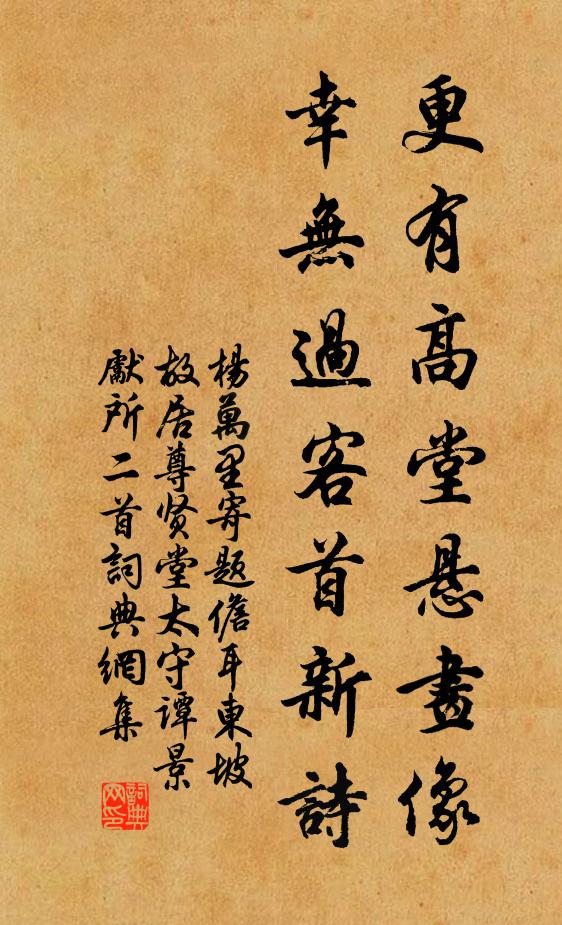 更有高堂悬畫像
幸無過客首新詩
楊萬里寄题儋耳東坡
故居尊贤堂太守譚景
獻所二首詞典網集
詞典
网印